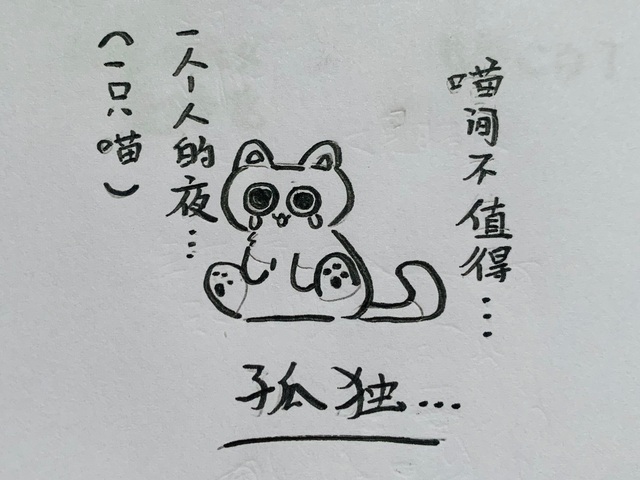 喵间不值得...
一个人的夜...
(一只喵)
孤独...